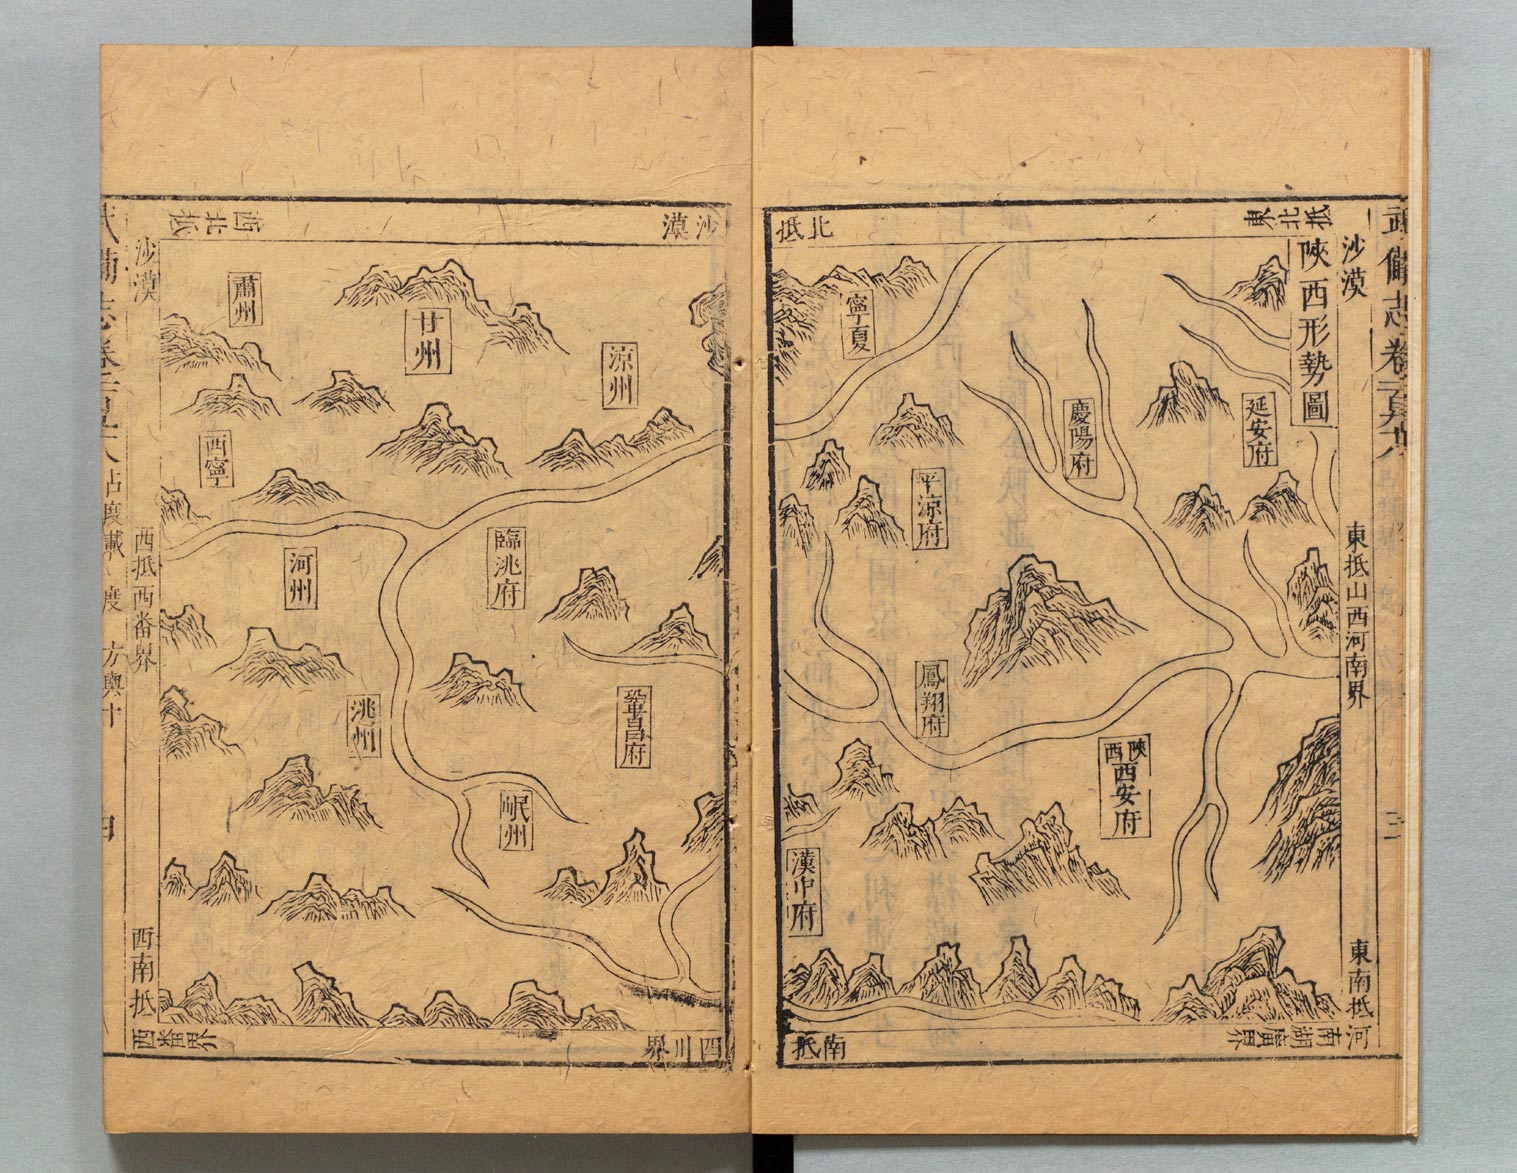 陝西形勢圖
東北抵
沙漠
東抵山西河南界
東南抵
河南湖廣界
北抵
沙漠
寧夏
延安府
慶陽府
平涼府
鳳翔府
陝西
西安府
漢中府
南抵
四川界
西北抵
沙漠
西抵西番界
西南抵
西番界
肅州
甘州
涼州
西寧
河州
臨洮府
洮州
鞏昌府
岷州
占度載 度 方輿